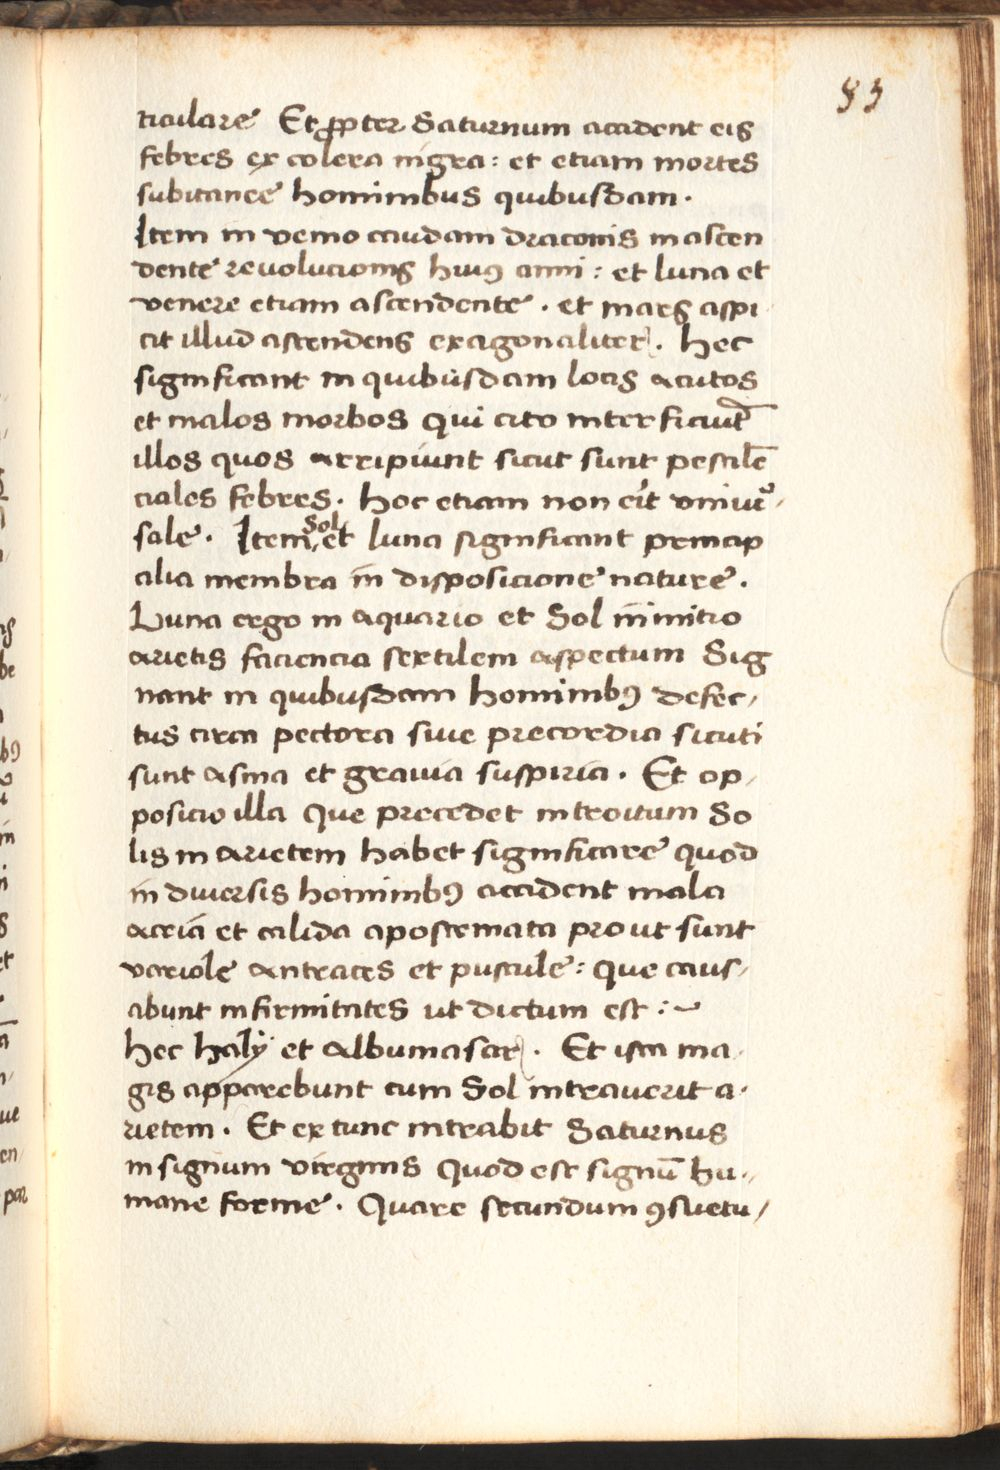 83
ticulare Et ꝓpter Saturnum accident eis
febres ex colera nigra: et etiam mortes
subitanee hominibus quibusdam.
Item in venio caudam draconis in ascen
dente revolucionis huiꝰ anni: et luna et
venere etiam ascendente. et mars aspi
cit illud ascendens exagonaliter. hec
significant in quibusdam locis acutos
et malos morbos Qui cito interficiūt
illos quos arripiunt sicut sunt pestilē
ciales febres. hoc etiam non erit univͣ
sale. Item Sol et luna significant princip
alia membra in disposicione nature.
Luna ergo in aquario et Sol in initio
arietis faciencia sextilem aspectum Sig
nant in quibusdam hominibꝰ defec/
tus circa pectora sive precordia sicuti
sunt asma et gravia suspiria. Et op/
posicio illa Que precedet introitum So
lis in arietem habet significare quod
in diversis hominibꝰ accident mala
acria et calida apostemata prout sunt
variole antraces et pustule: Que caus/
abunt infirmitates ut dictum est :~
hec haly et Albumasar. Et ista ma
gis apparebunt cum Sol intraverit a.
rietem. Et ex tunc intrabit Saturnus
in signum virginis Quod est signū hu/
mane forme. Quare secundum ꝯsuetu/